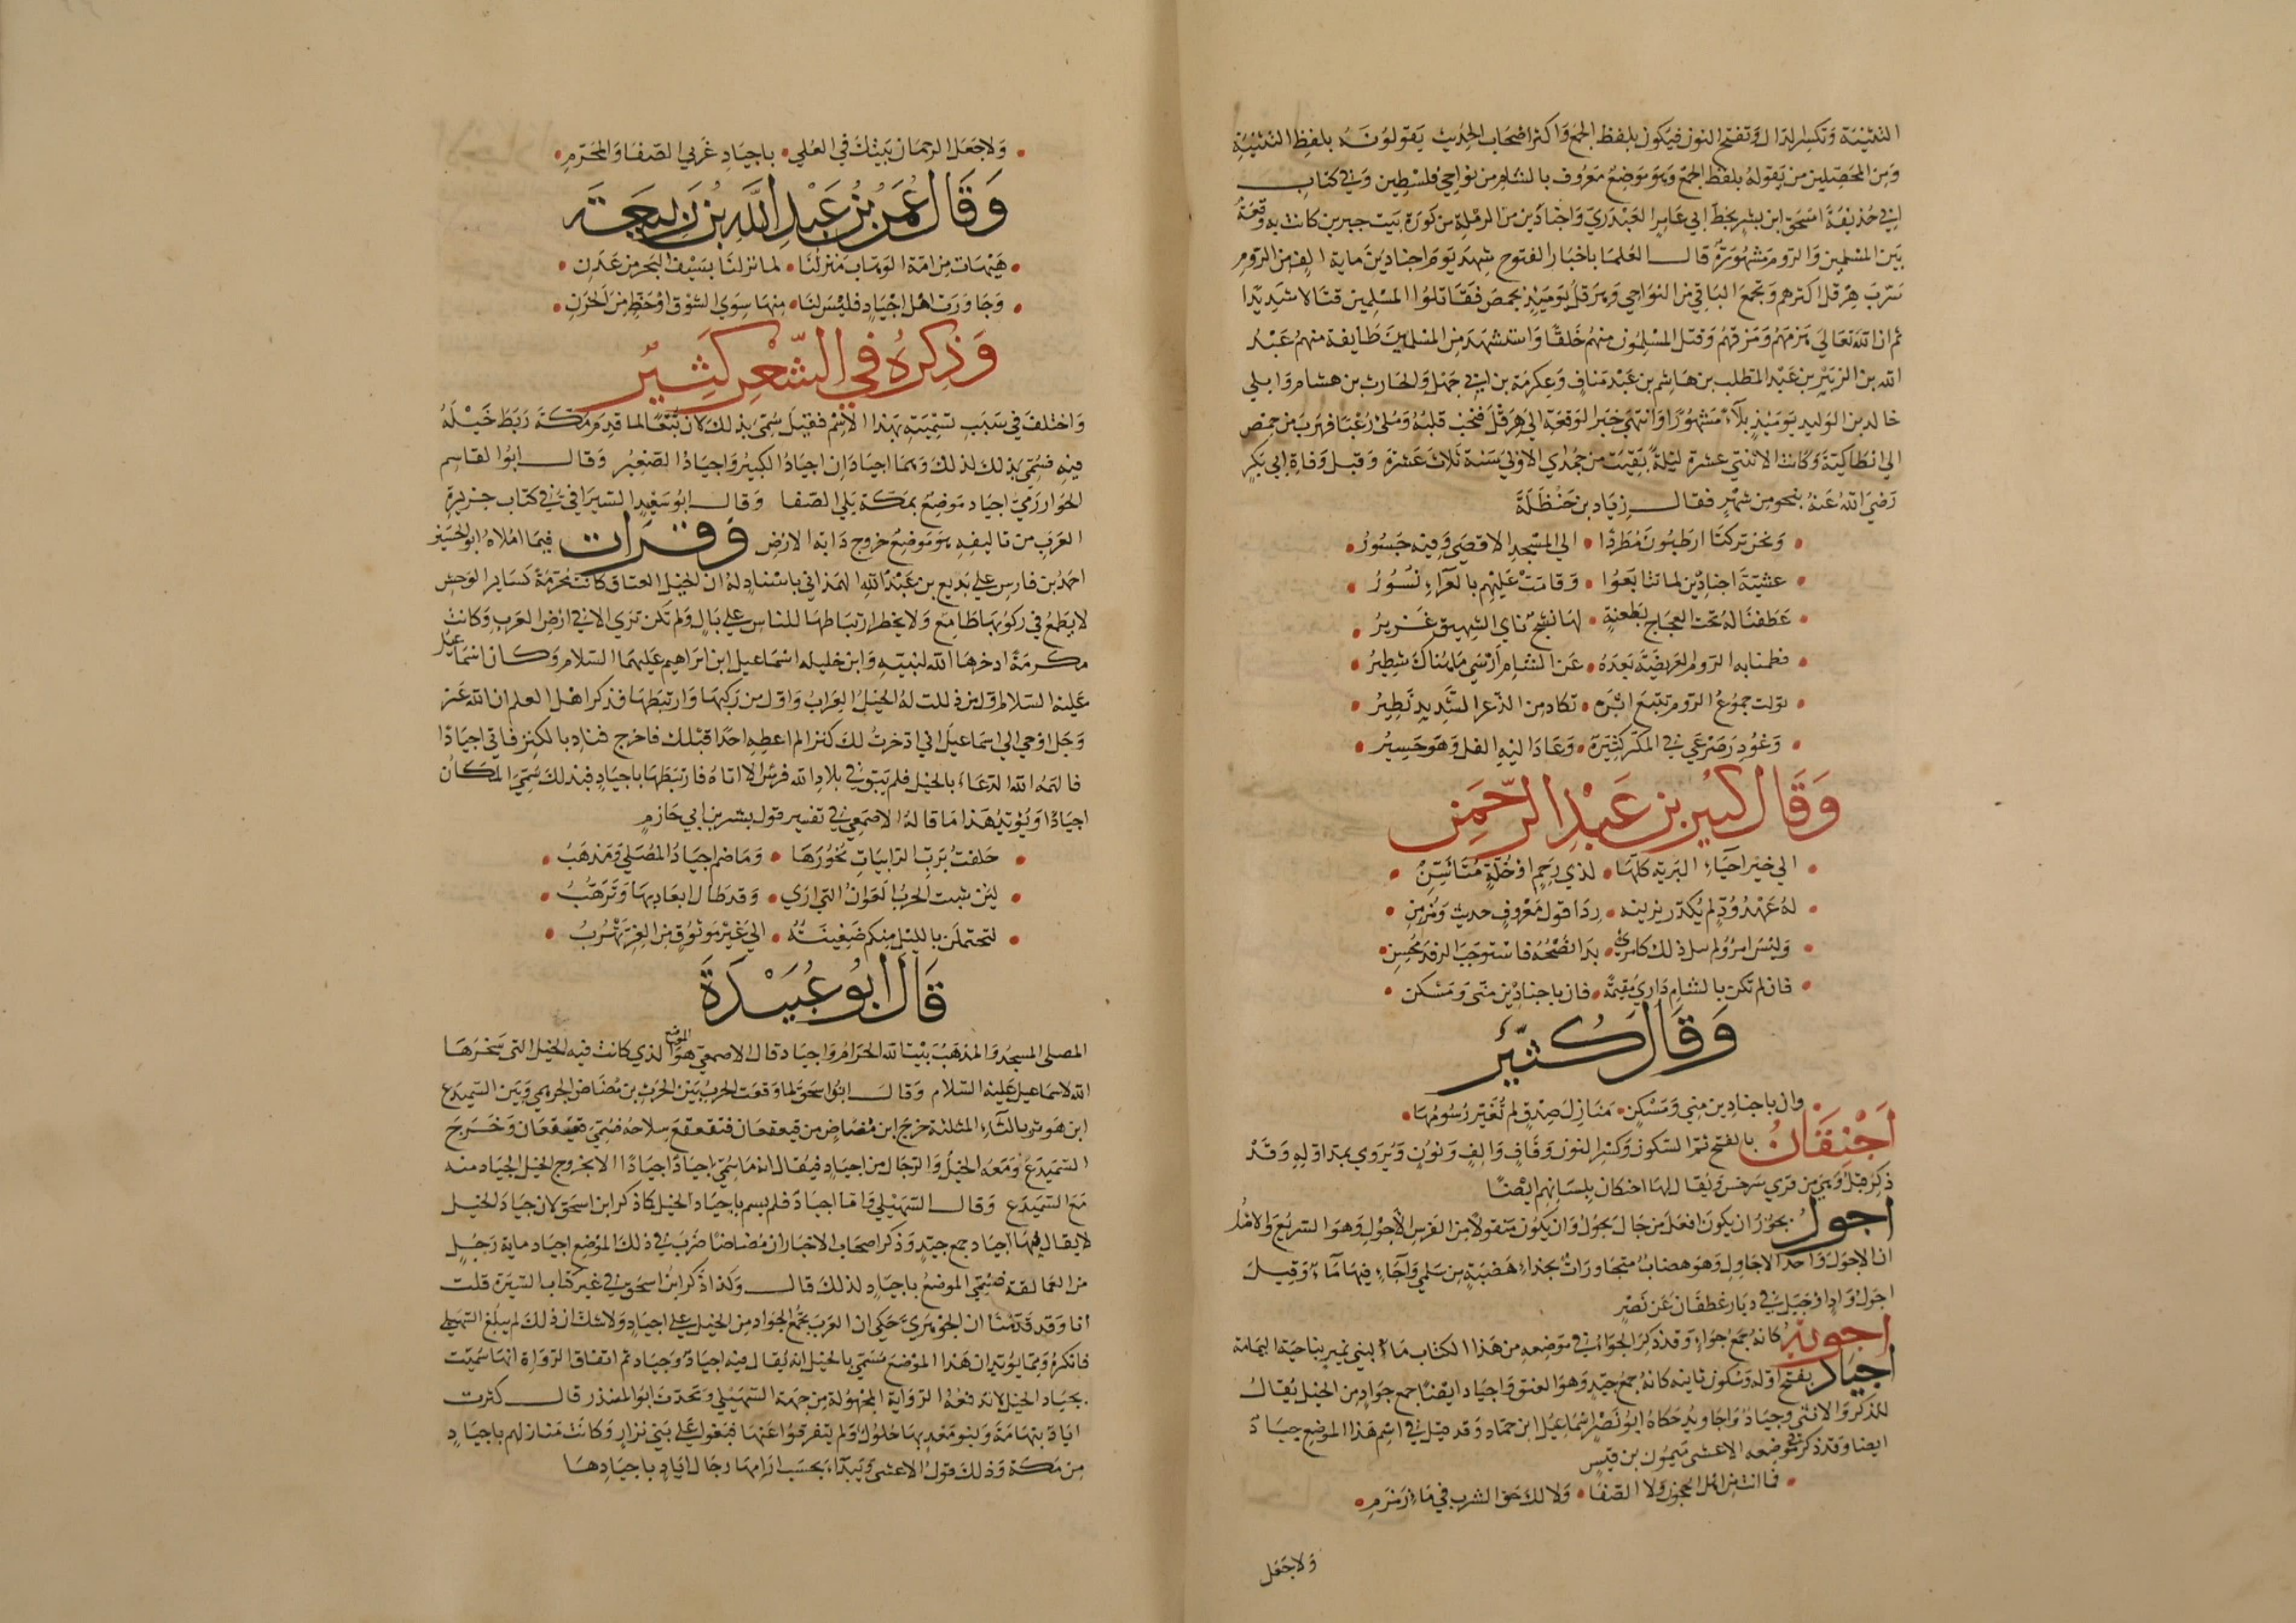 التثنية وتكسر الدال وتفتح النون فيكون بلفظ الجمع واكثر اصحاب الحديث يقولونه بلفظ التثنية
ومن المحصلين من يقوله بلفظ الجمع وهو موضع معروف بالشام من نواحي فلسطين وفي كتاب
ابي حذيفة اسحق ابن بشر بخط ابي عامر العبدري واجنادين من الرملة من كورة بيت جبرين كانت به وقعة
بين المسلمين والروم مشهورة قال العلما باخبار الفتوح شهد يوم اجنادين ماية الف من الروم
سرب هرقل اكثرهم وتجمع الباقي من النواحي وهرقل يوميذ بحمص فقاتلوا المسلمين قتالا شديدا
ثم ان الله تعالي هزمهم ومزقهم وقتل المسلمون منهم خلقا واستشهد من المسلمين طايفة منهم عبد
الله بن الزبير بن عبد المطلب بن هاشم بن عبد مناف وعكرمة بن ابي جهل والحارث بن هشام وابلي
خالد بن الوليد يوميذ بلاء مشهورا وانتهي خبر الوقعة الي هرقل فنخب قلبه وملئ رعبا فهرب من حمص
الي انطاكية وكانت الاثنتي عشرة ليلة بقيت من جمادي الاولي سنة ثلاث عشرة وقبل وفاة ابي بكر
رضي الله عنه بنحو من شهر فقال زياد بن حنظلة
ونحن تركنا ارطبون مطردا • الي المسجد الاقصي وفيه حسور
عشية اجنادين لما تتابعوا • وقامت عليهم بالعراء نسور
عطفنا له تحت العجاج بطعنة • لها نشج ناي الشهيق غزير
فطمنا به الروم العريضة بعده • عن الشام ارسي ما هناك شطير
تولت جموع الروم تتبع اثره • تكاد من الذعر الشديد تطير
وغودر صرعي في المكر كثيرة • وعاد اليه الفل وهو حسير
وقال كبير بن عبد الرحمن
الي خير احياء البرية كلها • لذي رحم او خلة متاسن
له عهد ود لم يكدر بريبه • ردا قول معروف حديث ومزمن
وليس امرؤ لم ذلك كامرئ • بدا نصحه فاستوجب الرفد محسن
فان لم تكن بالشام داري مقيمة • فان باجنادين منى ومسكن
وقال كثير
وان باجنادين مني ومسكن • منازل صدق لم تغير رسومها
اجنقان بالفتح ثم السكون وكسر النون وقاف والف ونون ويروي بمد اوله وقد
ذكر قبل وهي من قري سرخس ويقال لها اجنكان بلسانهم ايضا
اجول يجوز ان يكون افعل من جال يجول وان يكون منقولا من الفرس الاجول وهو السريع والاصل
ان الاجول واحد الاجاول وهو هضاب متجاورات بحذاء هضبة من سلمي واجاء فيها ماء وقيل
اجول واد او جبل في ديار غطفان عن نصر
اجوية كانه جمع جواء وقد ذكر الجواء في موضعه من هذا الكتاب ماء لبني نمير بناحية اليمامة
اجياد بفتح اوله وسكون ثانيه كانه جمع جيد وهو العنق واجياد ايضا جمع جواد من الخيل يقال
للذكر والانثي وجياد واجاويد حكاه ابو نصر اسماعيل ابن حماد وقد قيل في اسم هذا الموضع جياد
ايضا وقد ذكر في موضعه الاعشى ميمون بن قيس
فما انت من اهل الحجون ولا الصفا • ولا لك حق الشرب في ماء زمزم
ولا جعل
ولا جعل الرحمان بيتك في العلي • باجياد غربي الصفا والمحرم
وقال عمر بن عبد الله بن ربيعة
هيهات من امة الوهاب منزلنا • لما نزلنا بسيف البحر من عدن
وجاورت اهل اجياد فليس لنا • منها سوي الشوق او حظ من الحزن
وذكره في الشعر كثير
واختلف في سبب تسميته بهذا الاسم فقيل سمي بذلك لان تبعا لما قدم مكة ربط خيله
فيه فسمي بذلك لذلك وهما اجيادان اجياد الكبير واجياد الصغير وقال ابوا لقاسم
الخوارزمي اجياد موضع بمكة يلي الصفا وقال ابو سعيد السيرافي في كتاب جزيرة
العرب من تاليفه هو موضع خروج دابة الارض وقرات فيما املاه ابو الحسين
احمد بن فارس علي بديع بن عبد الله الهمذاني باسناد له ان الخيل العتاق كانت محرمة كساير الوحش
لا يطمع في ركوبها طامع ولا يخطر ارتباطها للناس علي بال ولم تكن تري الا في ارض العرب وكانت
مكرمة ادخرها الله لنبيه وابن خليله اسماعيل ابن ابراهيم عليهما السلام وكان اسماعيل
عليه السلام اول من ذللت له الخيل العراب واول من ركبها وارتبطها فذكر اهل العلم ان الله عز
وجل اوحي الي اسماعيل اني ادخرت لك كنزا لم اعطه احدا قبلك فاخرج فناد بالكنز فاتي اجيادا
فالهمه الله الدعاء بالخيل فلم يبق في بلاد الله فرس الا اتاه فارتبطها باجياد فبذلك سمي المكان
اجيادا ويؤيد هذا ما قاله الاصمعي في تفسير قول بشر بن ابي حازم
حلفت برب الداميات نحورها • وما ضم اجياد المصلي ومذهب
لئن شبت الحرب العوان التي اري • وقد طال ابعاد بها وترهب
لتحتملن بالليل منكم ضغينة • الي غير موثوق من العز تهرب
قال ابو عبيدة
المصلى المسجد والمذهب بيت الله الحرام واجياد قال الاصمعي هو الموضع الذي كانت فيه الخيل التي سخرها
الله لاسماعيل عليه السلام وقال ابوا سحق لما وقعت الحرب بين الحرث بن مضاض الجرهمي وبين السميدع
ابن هوثر بالثاء المثلثة خرج ابن مضاض من قيعقعان فتقعقع سلاحه فسمي قعيقعان وخرج
السميدع ومعه الخيل والرجال من اجياد فيقال انه ما سمي اجيادا اجيادا الا بخروج الخيل الجياد منه
مع السميدع وقال السهيلي واما اجياد فلم يسم باجياد الخيل كما ذكر ابن اسحق لان جياد الخيل
لا يقال فيها اجياد جمع جيد وذكر اصحاب الاخبار ان مضاضا ضرب في ذلك الموضع اجياد ماية رجل
من العمالقة فسمي الموضع باجياد لذلك قال وكذا ذكر ابن اسحق في غير كتاب السيرة قلت
انا وقد قدمنا ان الجوهري حكي ان العرب تجمع الجواد من الخيل علي اجياد ولا شك ان ذلك لم يبلغ السهيلي
فانكره ومما يؤيد ان هذا الموضع مسمي بالخيل انه يقال فيه اجياد وجياد ثم اتفاق الرواة انها سميت
بجياد الخيل لا تدفعه الرواية المجهولة من جهة السهيلي وتحدث ابو المنذر قال كثرت
اياد بتهامة وبنو معد بها حلول ولم يتفرقوا عنها فبغوا علي بني نزار وكانت منازلهم باجياد
من مكة وذلك قول الاعشى وبيداء تحسب ارامها رجال اياد باجيادها